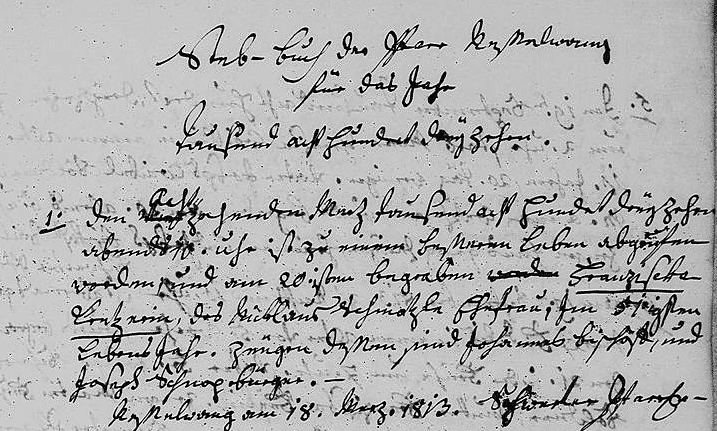 Sterb-buch der Pfarr Nesselwang
für das Jahr
tausend acht hundert dreÿzehen.
1. den acht zehenden Merz tausend acht hundert dreÿzehen
abends 10. uhr ist zu einem besseren Leben abgerufen
worden, und am 20isten begraben worden Franziska
, des Nicklaus Schmözle Ehefrau, im igsten
Lebens Jahr. Zeugen dessen sind Johannes bischoff, und
Joseph Schnapbürger. —
Nesselwang am 18. Merz. 1813. Pfarrer —